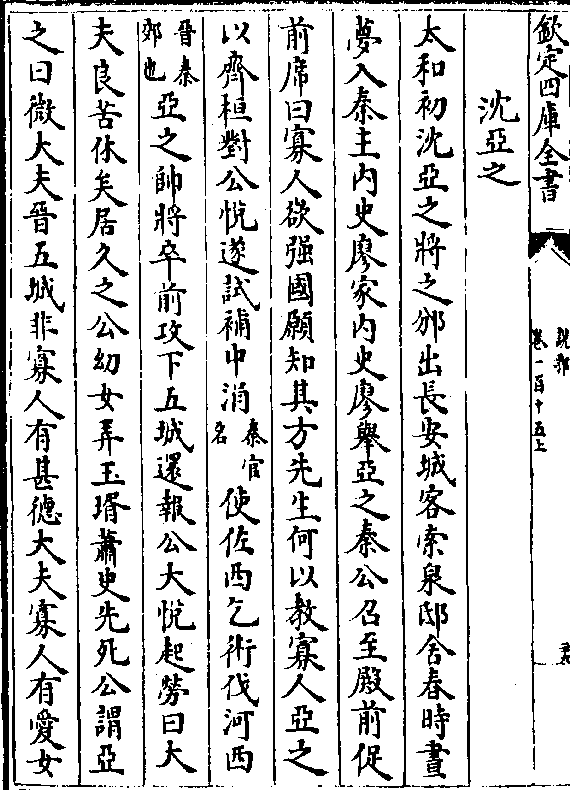 欽定四庫全書
說郛
卷一百十五上
沈亞之
太和初沈亞之將之邠出長安城客索泉邸舍春時晝
夢入秦主内史廖家内史廖舉亞之秦公召至殿前促
前席曰寡人欲强國願知其方先生何以教寡人亞之
以齊桓對公悅遂試補中涓秦官名使佐西乞術伐河西
晉秦郊也亞之帥將卒前攻下五城還報公大悅起勞曰大
夫良苦休矣居久之公幼女弄玉壻蕭史先死公謂亞
之曰微大夫晉五城非寡人有甚德大夫寡人有愛女